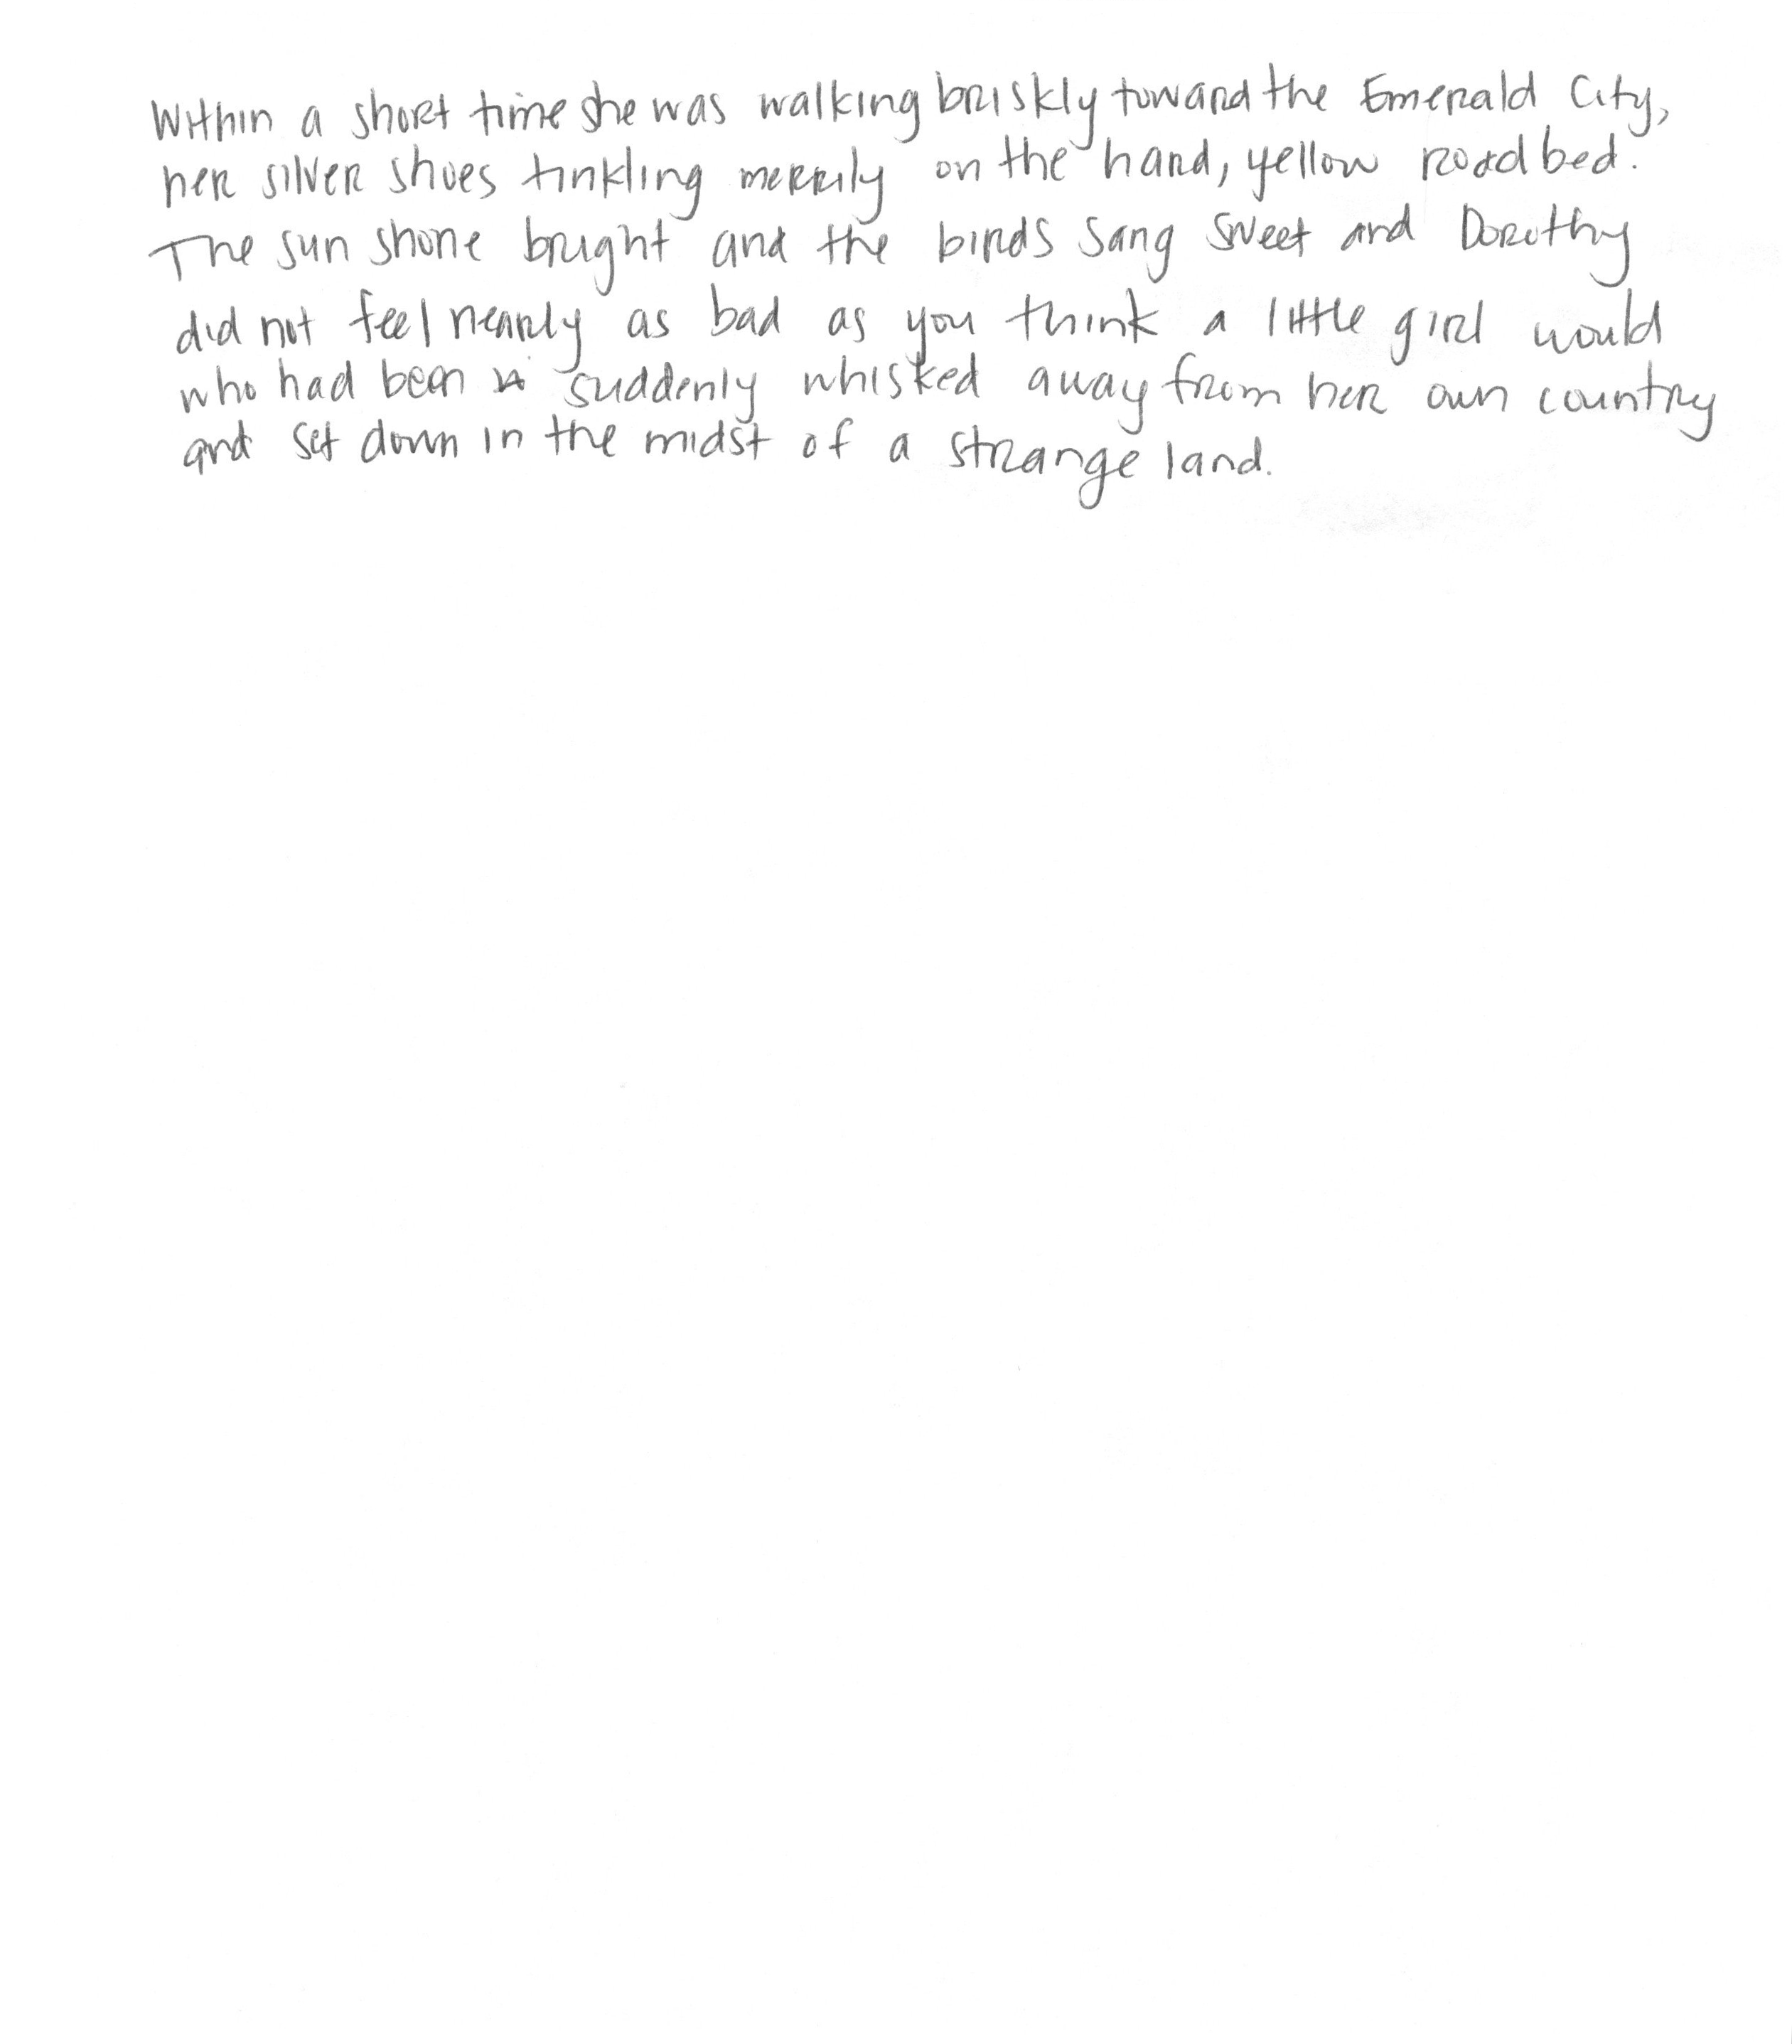 Within a short time she was walking briskly toward the Emerald City,
her silver shoes tinkling merrily on the hard, yellow roadbed.
The sun shone bright and the birds sang sweet and Dorothy
did not feel nearly as bad as you think a little girl would
who had been suddenly whisked away from her own country
and set down in the midst of a strange land.